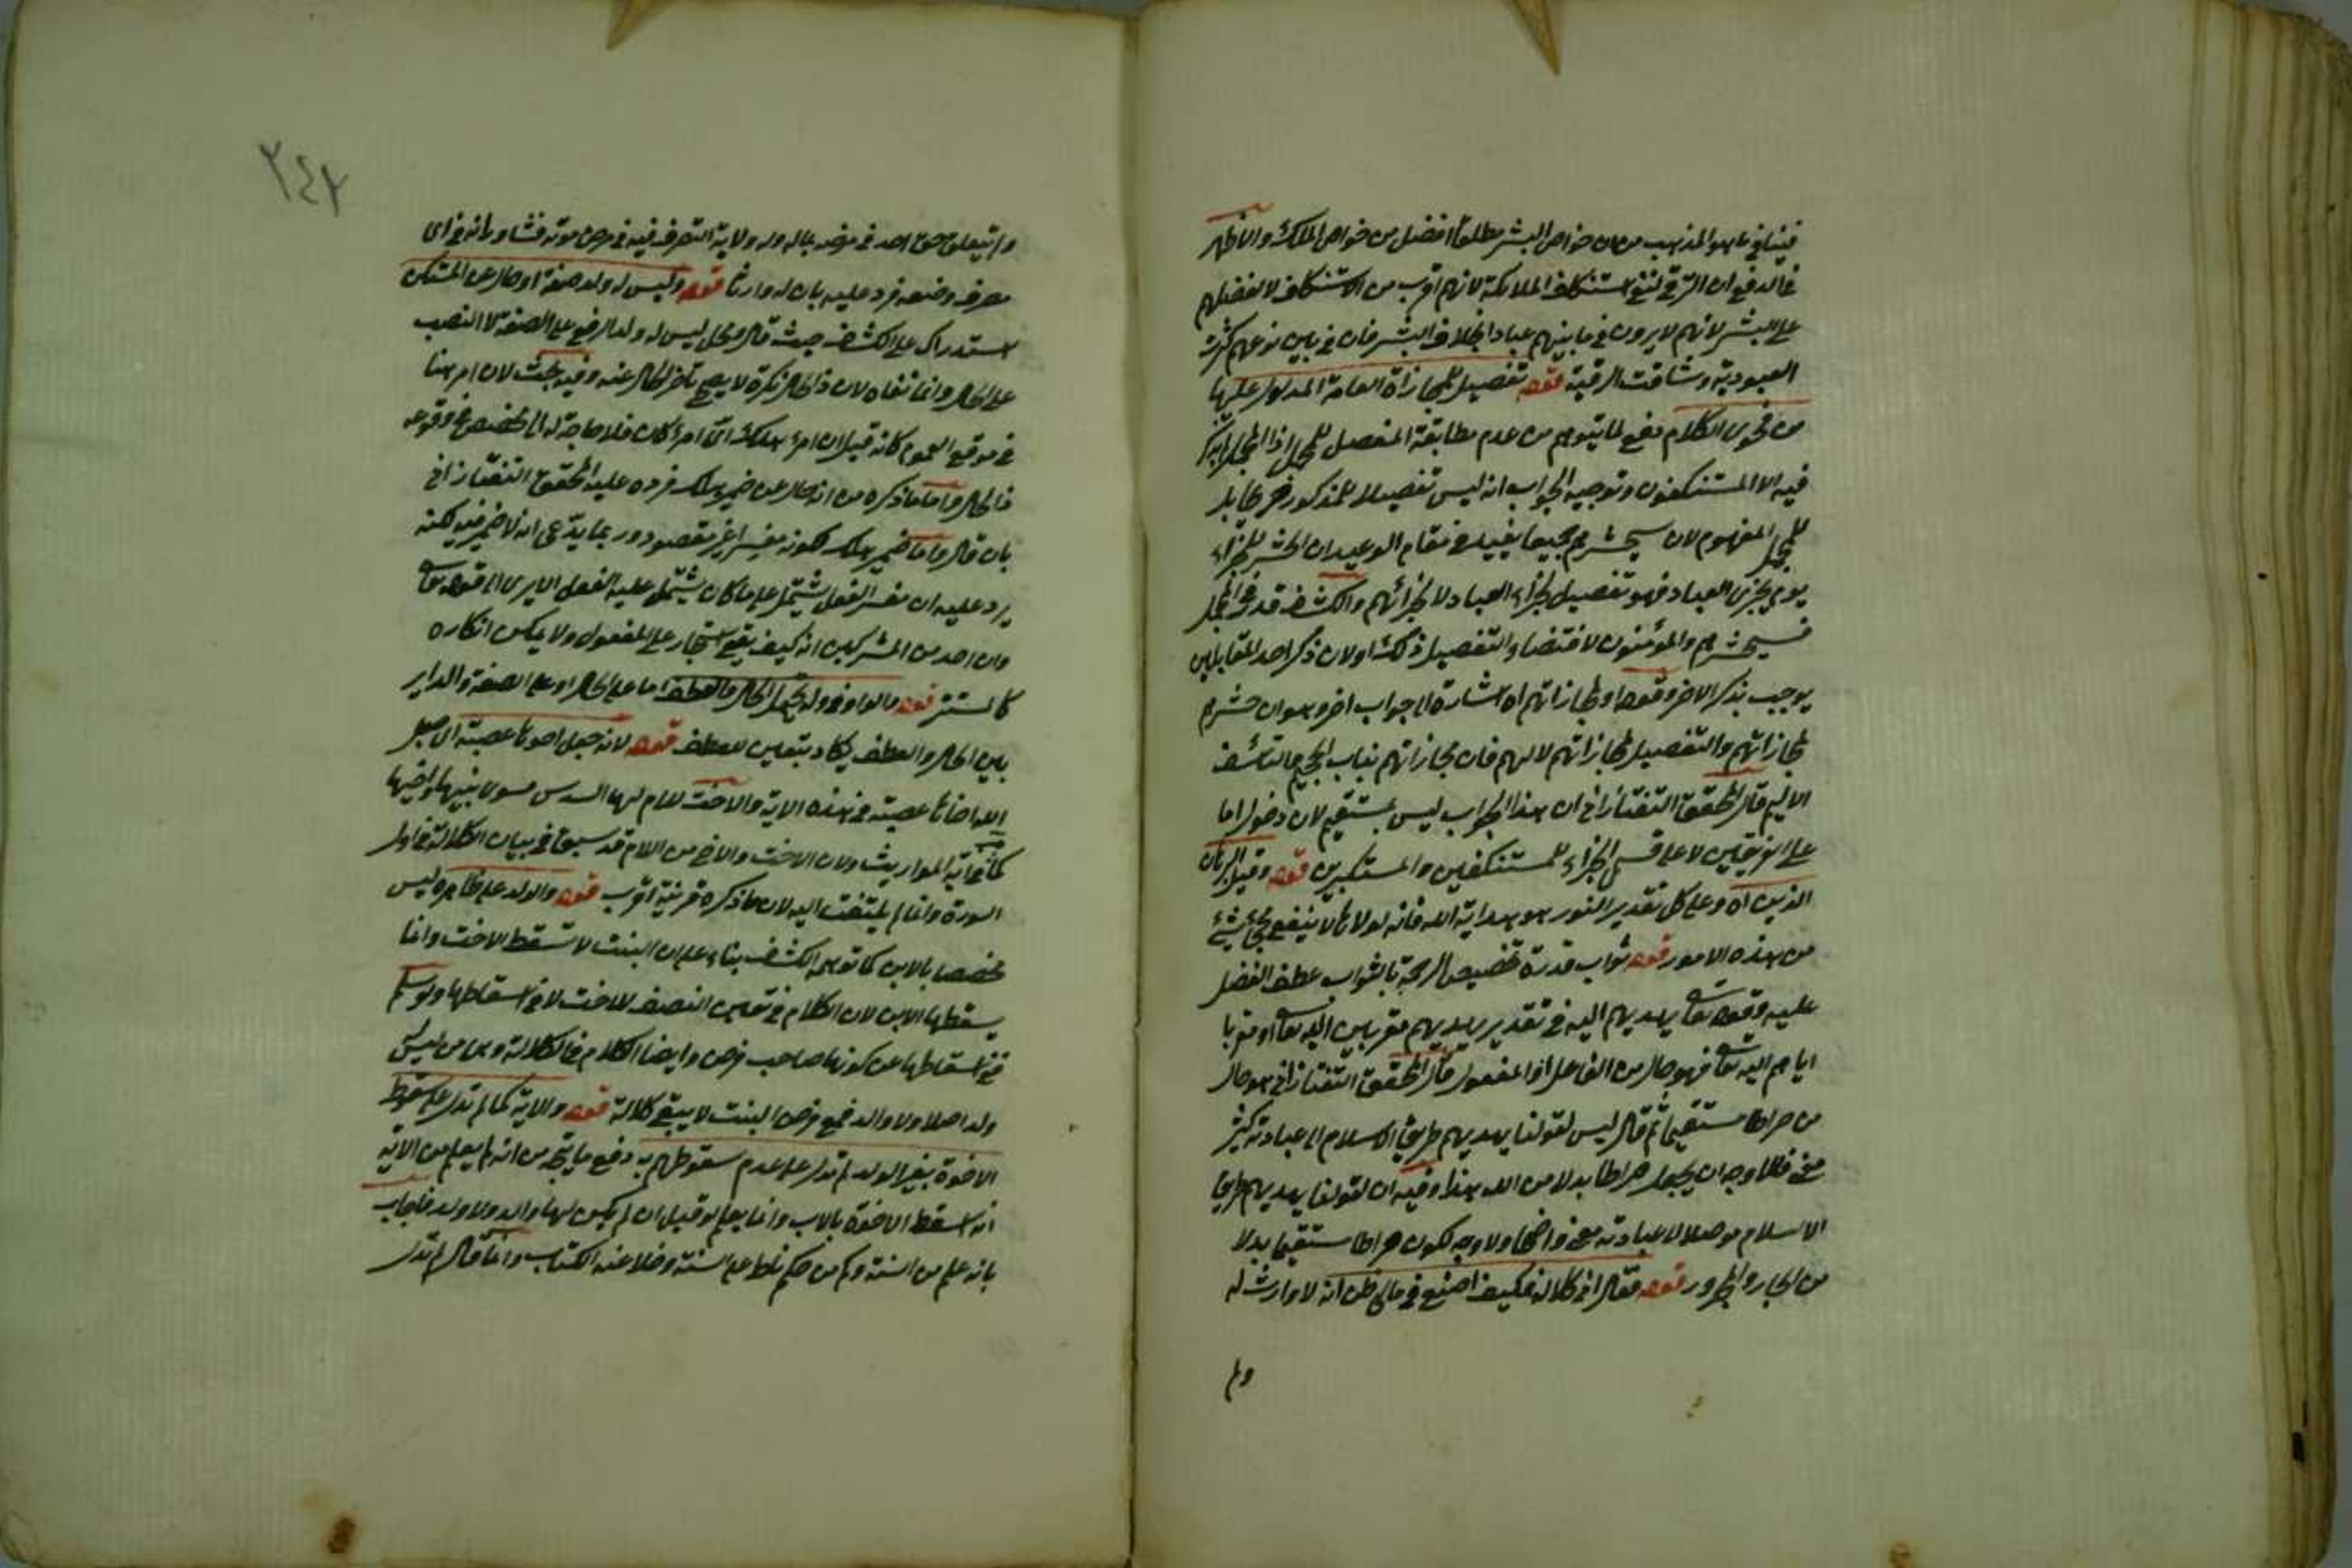 فينافي ما هو المذهب من ان خواص البشر مطلقا افضل من خواص الملك والاظهر
في الدفع ان الترقي لنفي استنكاف الملائكة لانهم اقرب من الاستنكاف لا لفضلهم
على البشر لانهم لا يرون في ما بينهم عبادا بخلاف البشر فان في بين نوعهم كثرت
العبودية وشاقت الرقية قوله تفصيل للمجازاة العامة المدلول عليها
من فحوى الكلام دفع لما يتوهم من عدم مطابقة المفصل للمجمل اذ المجمل لم يذكر
فيه الا المستنكفون وتوجيه الجواب انه ليس تفصيلا للمذكور بل
للمجمل المفهوم لان سيحشرهم جميعا يفيد في مقام الوعيد ان الحشر للجزاء
يوم يجزى العباد فهو تفصيل لجزاء العباد لا لجزائهم والكشاف قدر في المجمل
فسيحشرهم والمؤمنون لاقتضاء التفصيل ذلك اولان ذكر احد المتقابلين
يوجب بذكر الاخر وقوله او لمجازاتهم اه اشارة الى جواب اخر وهو ان حشرهم
لمجازاتهم والتفصيل لمجازاتهم لا لهم فان مجازاتهم بالتأسف
الاليم قال المحقق التفتازاني ان هذا الجواب ليس بمستقيم لان دخول اما
على الفريقين لا على قسمي الجزاء للمستنكفين والمستكبرين قوله وقيل البرهان
الدين اه وعلى كل تقدير النور هو هداية الله فانه لولاها لا ينفع شئ
من هذه الامور قوله ثواب قدره تخصيص الرحمة بالثواب عطف الفضل
عليه وقوله تعا يهديهم اليه في تقدير يهديهم مقربين اليه تعا او مقربا
اياهم اليه تعا فهو حال من الفاعل او المفعول قال المحقق التفتازاني هو حال
من صراطا مستقيما ثم قال ليس لقولنا يهديهم طريق الاسلام الى عبادته كثير
معنى فالاوجه ان يجعل صراطا بدلا من اليه هذا وفيه ان لقولنا يهديهم طريق
الاسلام موصلا الى عبادته معنى واضحا ولا وجه لكون صراطا مستقيما بدلا
من الجار والمجرور قوله فقال اني كلالة فكيف اصنع في مالي ظن انه لا وارث له
ولم
٢٤٢
ولم يتعلق حق احد في مرضه بماله وله ولاية التصرف فيه في مرض موته فشاوره في اى
مصرف وضعه فرد عليه بان له وارثا قوله وليس له ولد صفة او حال عن المستكن
استدراك على الكشاف حيث قال ومحل ليس له ولد الرفع على الصفة لا النصب
على الحال وانما نفاه لان ذا الحال نكرة لا يصح تأخر الحال عنه وفيه بحث لان امر هنا
في موقع العموم كانه قيل ان امرؤ هلك اي امرؤ كان فلا حاجة له الى مخصص في وقوعه
ذا الحال واما ما ذكره من انه حال عن ضمير هلك فرده عليه المحقق التفتازاني
بان قال واما ضمير هلك فكونه مفسرا غير مقصود وربما يدعى انه لا ضمير فيه لكنه
يرد عليه ان مفسر الفعل يشتمل على ما كان يشتمل عليه الفعل الا يرى الى قوله تعا
وان احد من المشركين انه كيف يقع استجار على المفعول ولا يمكن انكاره
كالمستتر قوله والواو في وله يحتمل الحال والعطف اما على الحال او على الصفة والداير
بين الحال والعطف يكاد يتعين للعطف قوله لانه جعل اخوها عصبة الاصل
الله اخاها عصبة في هذه الاية والاخت للام لها السدس مسوى بينها واخيها
كما في اية المواريث ولان الاخت والاخ من الام قد سبق في بيان الكلالة في اول
السورة وانما لم يلتفت اليه لان ما ذكره قرينة اقرب قوله والولد على ظاهره ليس
مخصصا بالابن كما توهم الكشاف بناء على ان البنت لا تسقط الاخت وانما
يسقطها الابن لان الكلام في تعيين النصف للاخت لا في اسقاطها ولو سلم
ففي اسقاطها عن كونها صاحب فرض وايضا الكلام في الكلالة وهى من ليس
ولد اصلا ولا والد فمع فرض البنت لا يبقى كلالة قوله والاية كما لم تدل على سقوط
الاخوة بغير الولد لم تدل على عدم سقوطهم به دفع ما يتجه من انه لم يعلم من الاية
انه اسقط الاخوة بالاب وانما يعلم لو قيل ان لم يكن لها والد ولا ولد فاجاب
بانه علم من السنة وكم من حكم نيط على السنة وخلا عنه الكتاب وانما قال لم تدل